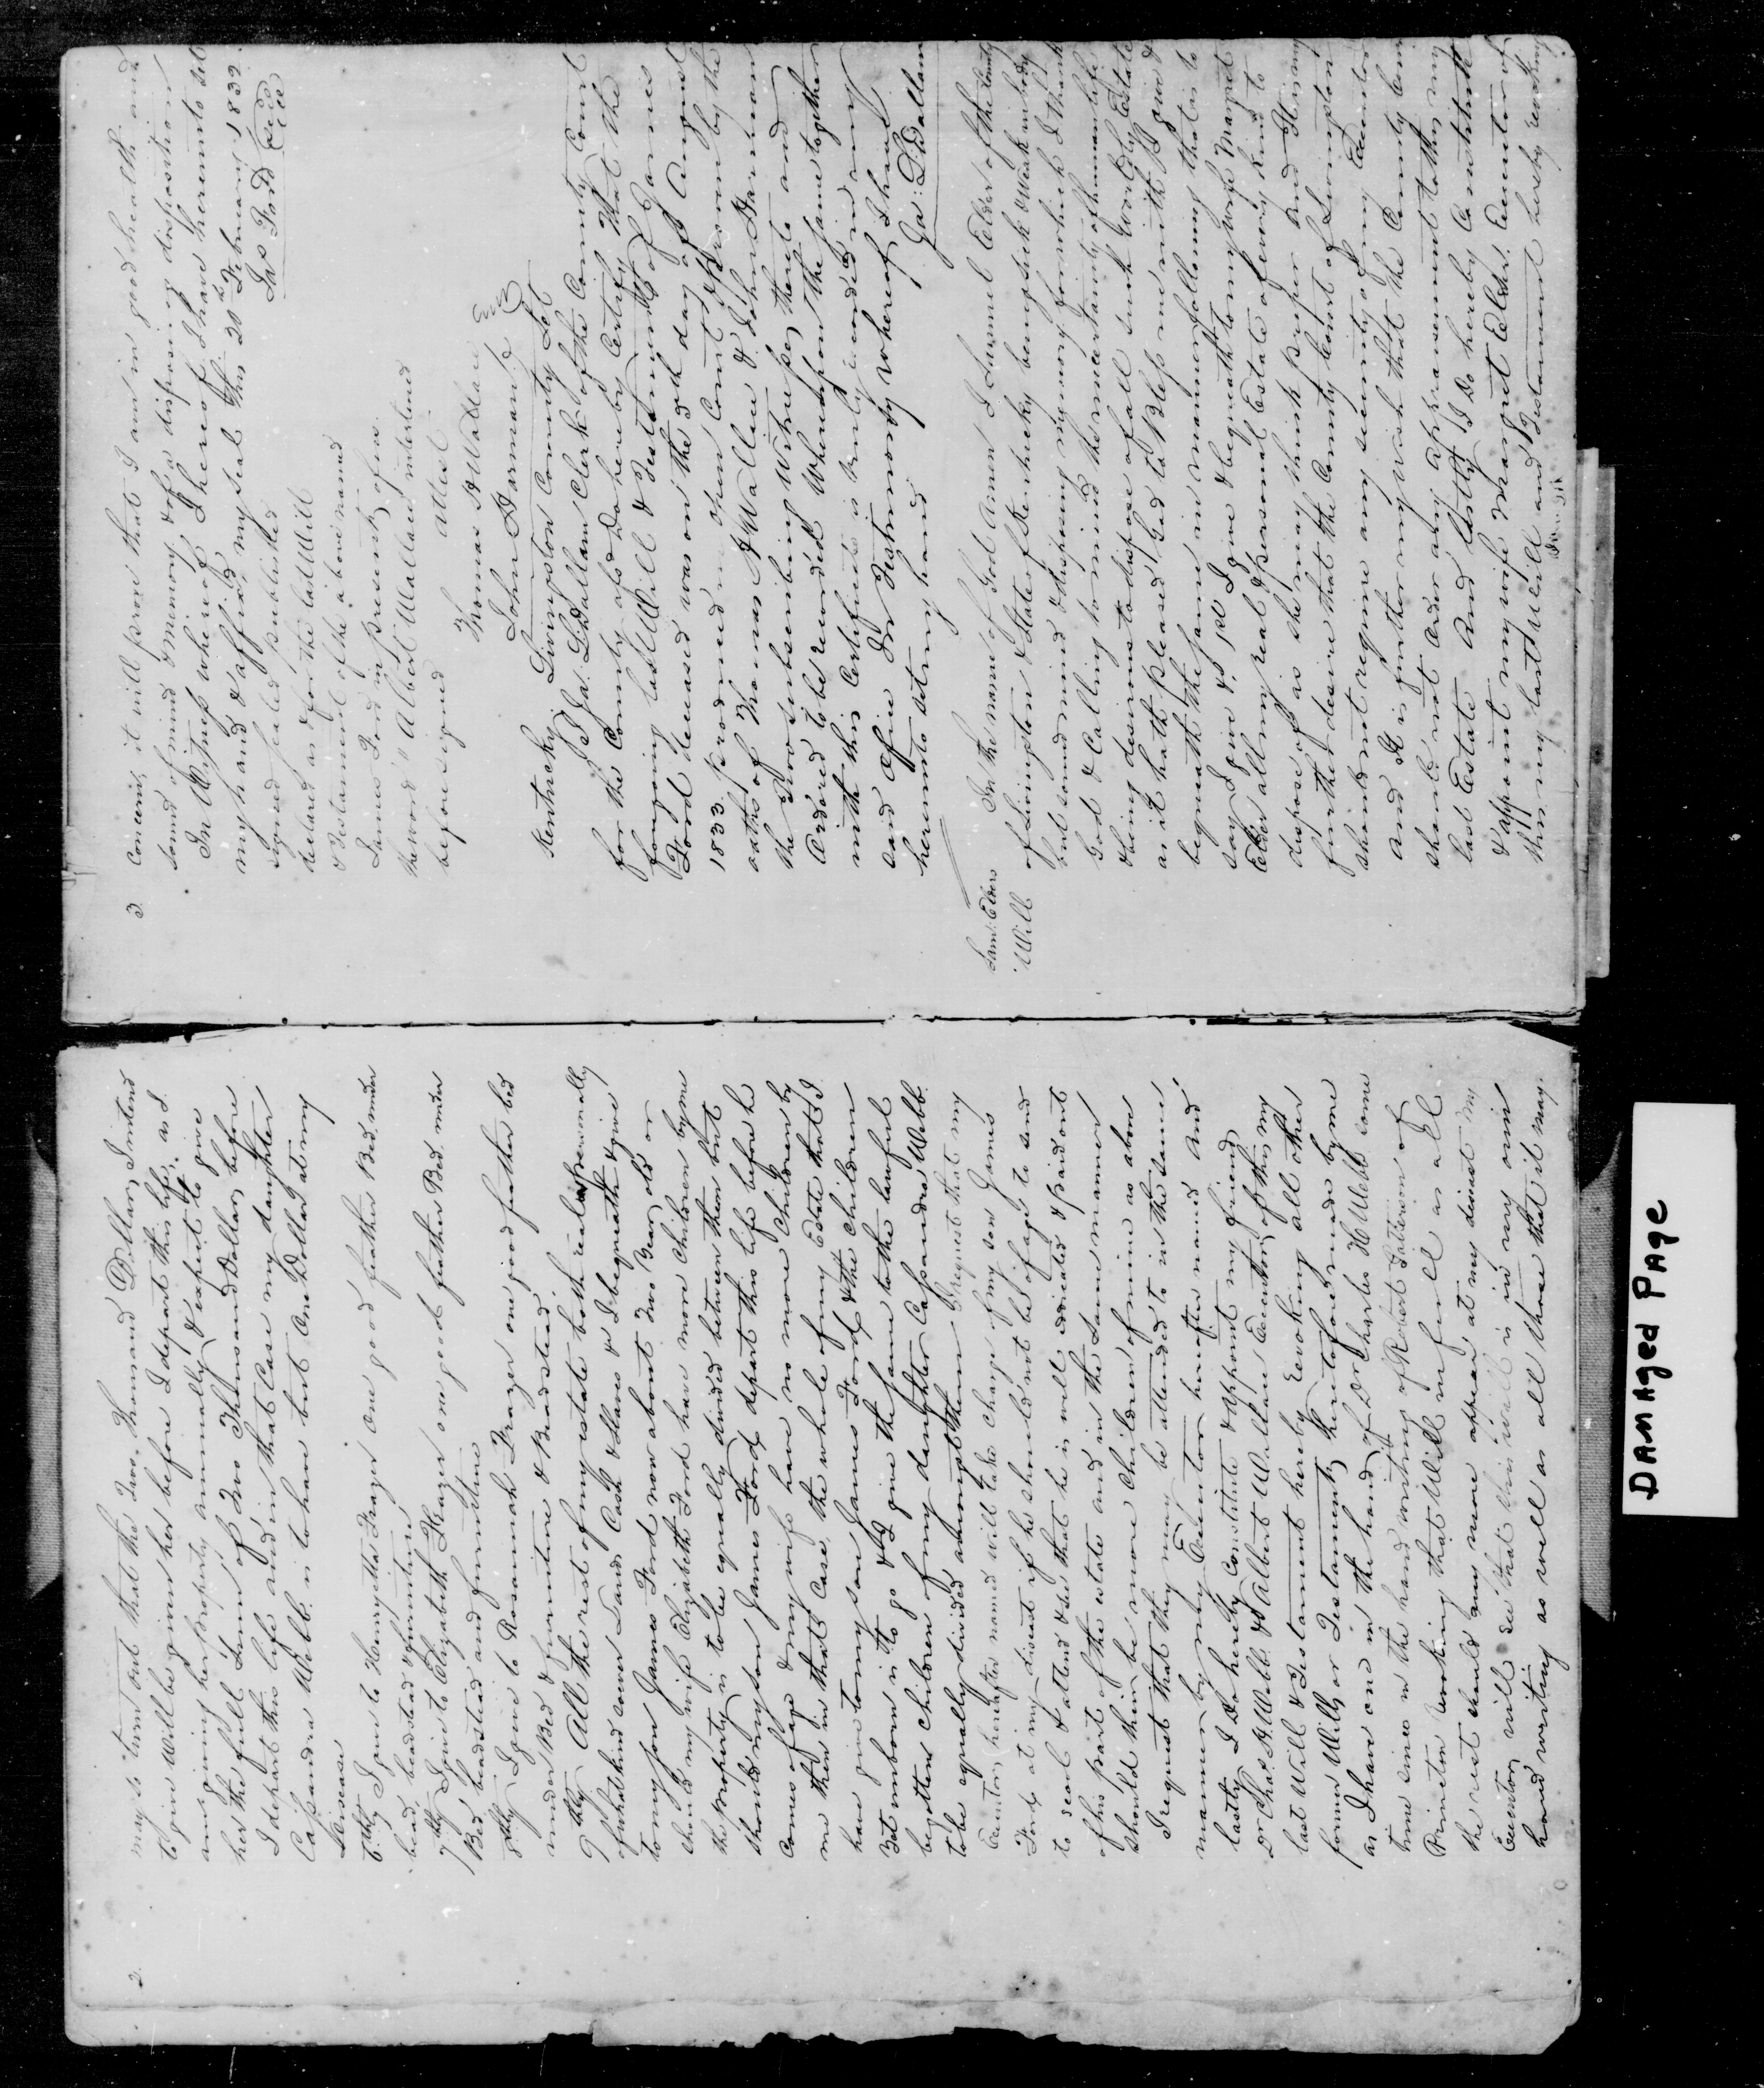 2.
may so turn out that the Two Thousand Dollars I intend
to give Will be given her before I depart this life, as I
am giving her property annually & expect to give
her the full Sum of Two Thousand Dollars before
I depart this life and in that Case my daughter
Cassandra Webb is to have but One Dollar at my
disease
6.thly I give to Henryetta Frazer one good feather Bed, under
bead, beadsted & furniture
7thly I give to Elizabeth Frazer one good feather Bed under
Bed, beadsted and furniture
8thly I give to Rosannah Frazer one good feather bed
under Bed & furniture & Beadstead.
9thly All the rest of my estate both real & personally
of what kind soever Lands Cash & Slaves &c I bequeath & give
to my son James Ford now about Two Years old or
should my wife Elizabeth Ford have more children by me
the property is to be equally divided between them but
should my son James Ford depart this life before he
comes of age & my wife have no more children by
me then in that Case the whole of my Estate that I
have given to my son James Ford & the children
Yet unborn is to go & I give the same to the lawful
begotten children of my daughter Cassandra Webb
to be equally divided amongst them I request that my
Executors hereafter named will take charge of my son James
Ford at my diseast if he should not be of age to send
to scool & attend & see that he is well educated & paid out
of his part of the estate and in the same manner
should their be more children of mine as above
I request that they may be attended to in the same
manner by my Executors hereafter named And
lastly I do hereby Constitute & appoint my friend
Dr Chas. H Webb & Albert Wallace Executors of this my
last Will & Testament hereby revoking all other
former Wills or Testaments heretofore made by me
as I have one in the hands of Dr Charles H Webb some
time since in the hand writing of Robert Patterson of
Princeton revoking that Will in full as all
the rest should any more appear at my diseast My
Executors will see that this will is in my own
hand writing as well as all those that it may.
3.
Concern, it will prove that I am in good health and
sound of mind & memory & of a disposing disposition
In Witness whereof I hereof I have hereunto set
my hand & affixed my seal this 20th February 1832.
Jas Ford Seal
signed sealed published
declard as & for the last Will
& Testament of the above named
James Ford in presents of us
the word "Albert Wallace interlined
before signed
Attest
Thomas A Wallace
John Barman
Kentucky Livingston County Sct
I Ja: L Dallam Clerk of the County Court
for the County afsd do hereby Certify that the
foregoing last Will & Testament of James
Ford deceased was on the 5th day of August
1833. produced in open Court & proven by the
oaths of Thomas A Wallace & John Barman
the Two subscribing Witnesses thereto and
Ordered to be recorded Whereupon the same together
with this Certificate is truly recorded in my
said Office In Testimony whereof I have
hereunto set my hand
Ja: L Dallam
Saml. Elders
Will
In the name of God Amen I Samuel Elder of the County
of Livingston & State of Kentucky being sick & weak in body
but sound mind & disposing memory for which I thank
God & Calling to mind the uncertainty of human life
& being desirous to dispose of all such worldly Estate
as it hath pleased God to Bless me with I give &
bequeath the same in manner following that is to
say I give & 1st I give & bequeath to my wife Margret
Elder all my real & personal Estate of every kind to
dispose of as she may think proper and It is my
further desire that the County Court of Livingston
should not require any security of my Executor
and It is further my wish that the County Court
should not Order any appraisement to this, my
last Estate And lastly I do hereby Constitute
& appoint my wife Margret Elder Executor of
this my last Will and Testament hereby revoking
DAMAged PAge